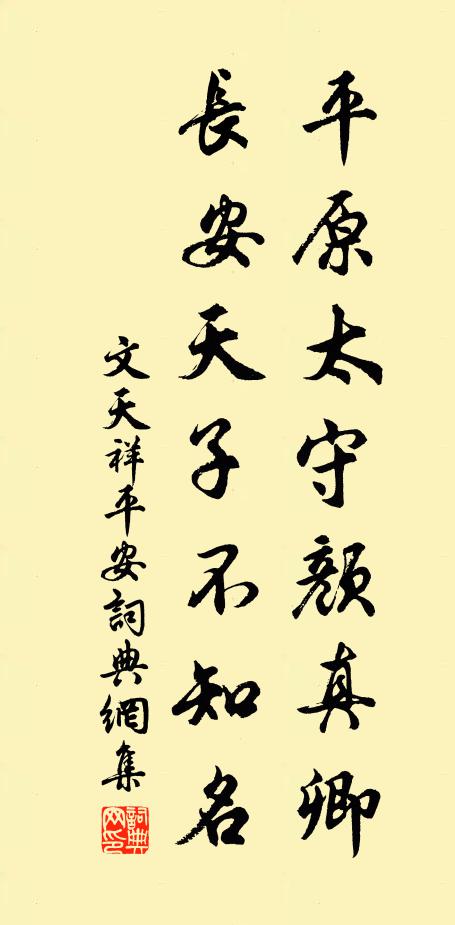 平原太守顏真卿
長安天子不知名
文天祥平安詞典網集
詞典网印